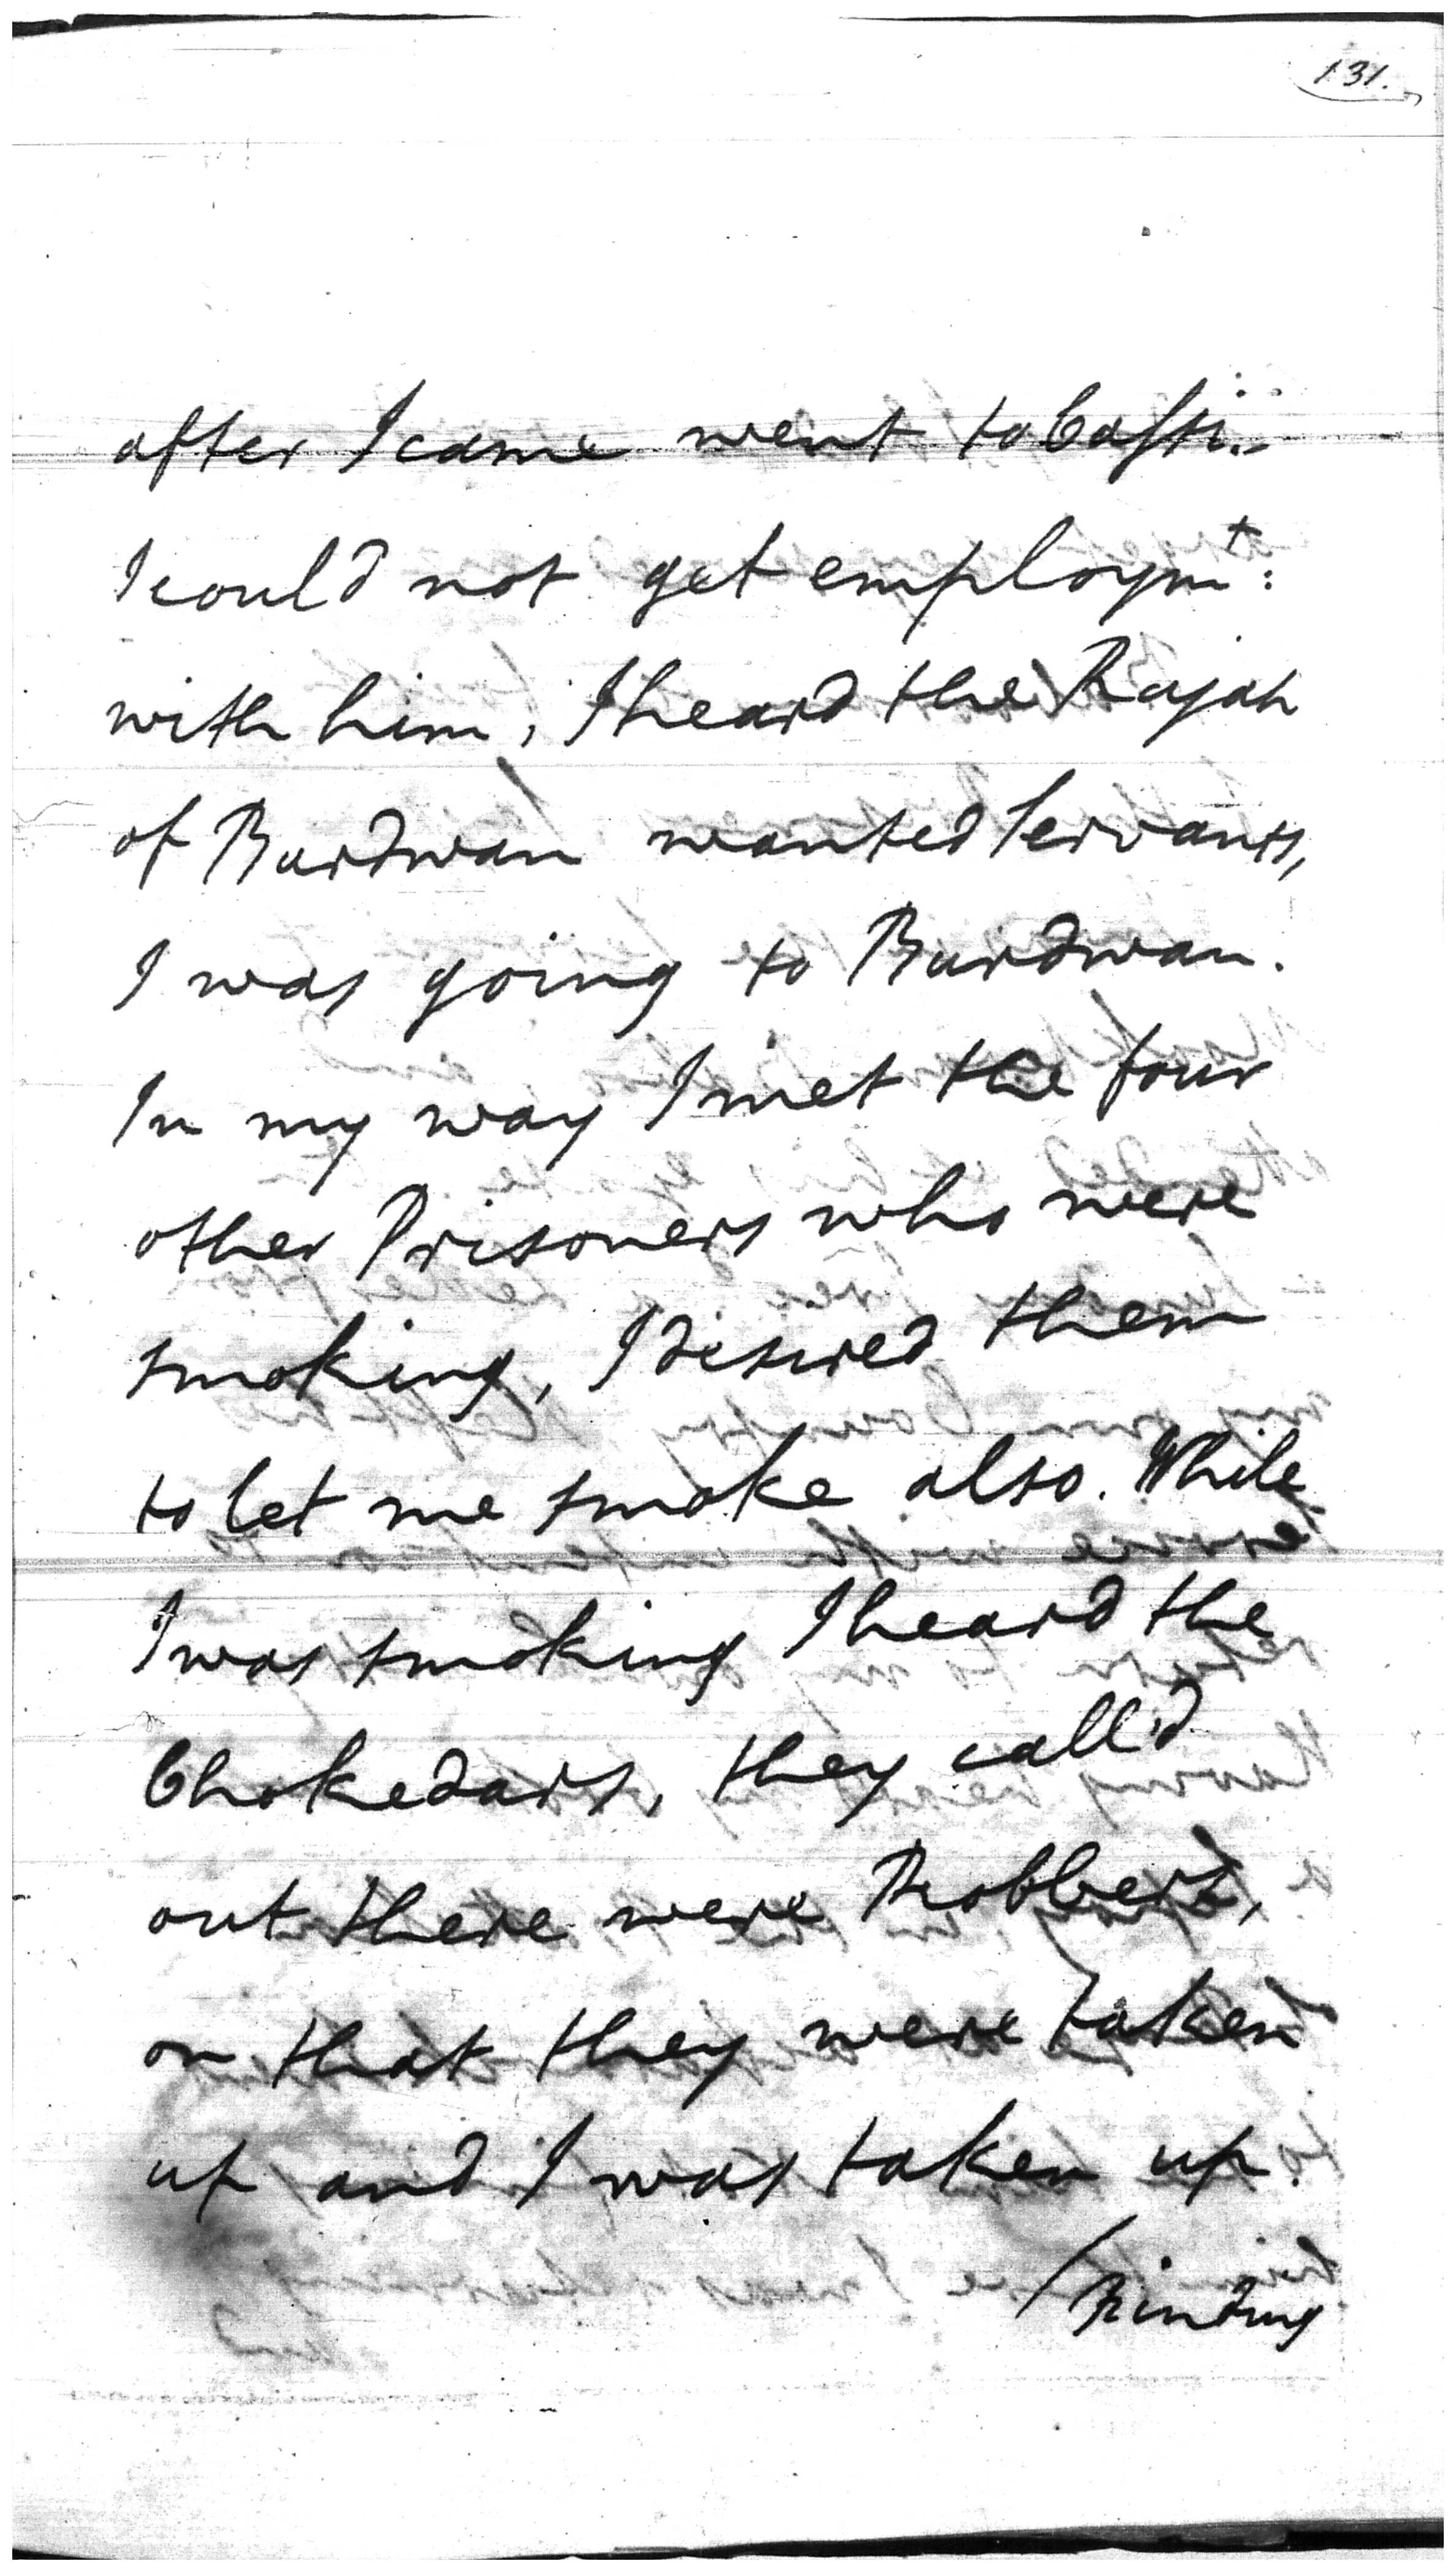 131.
after I came went to Cossim
I could not get employmt:
with him, I heard the Rajah
of Burdwan wanted Servants,
I was going to Burdwan.
In my way I met the four
other Prisoners who were
smoking, I desired them
to let me smoke also. While
I was smoking I heard the
Chokedars, they call'd
out there were Robbers,
on that they were taken
up and I was taken up.